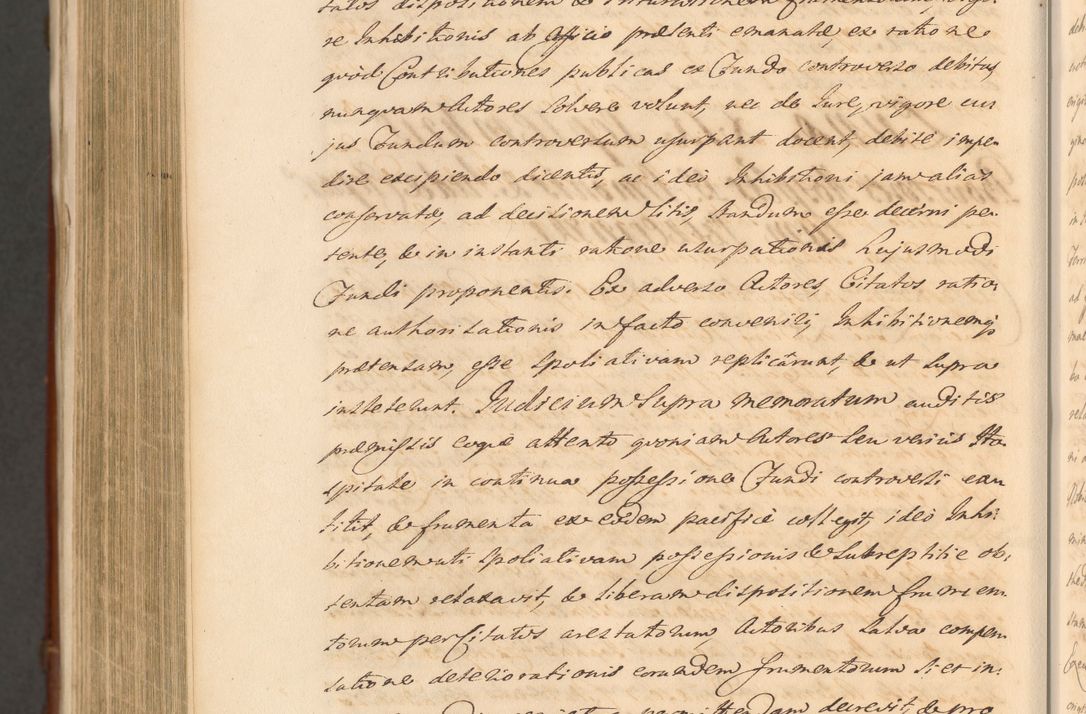 re Inhibitionis ab officio præsenti emanatæ, ex ratione
quòd Contributiones publicas ex Fundo controverso debitas
nunquam Actores solvere volunt, nec de Jure, vigore cu
jus Fundum controversum usurpant docent, debite impe
dire excipiendo dicentis, ac ideò Inhibitioni jam alias
conservatæ, ad decisionem litis, standum esse decerni pe
tentis, & in instanti ratione usurpationis hujusmodi
Fundi proponentis. Ex adverso Actores, Citatos ratio
ne authorisationis in facto conveniri, Inhibitionemq
prætensam, esse spoliativam replicârunt, & ut supra
institerunt. Judicium supra memoratum auditis
præmissis eoque attento quoniam Actores seu verius Ho
spitale in continua possessione Fundi controversi exti
tit, & frumenta ex eodem pacificè collegit, ideò Inhi
bitionem uti spoliativam possessionis & subreptitie ob:
tentam relaxavit, & liberam dispositionem frumen
torum per Citatos arestatorum Actoribus salva compen
satione deteriorationis eorundem frumentorum si et in:
decrevit, & pro